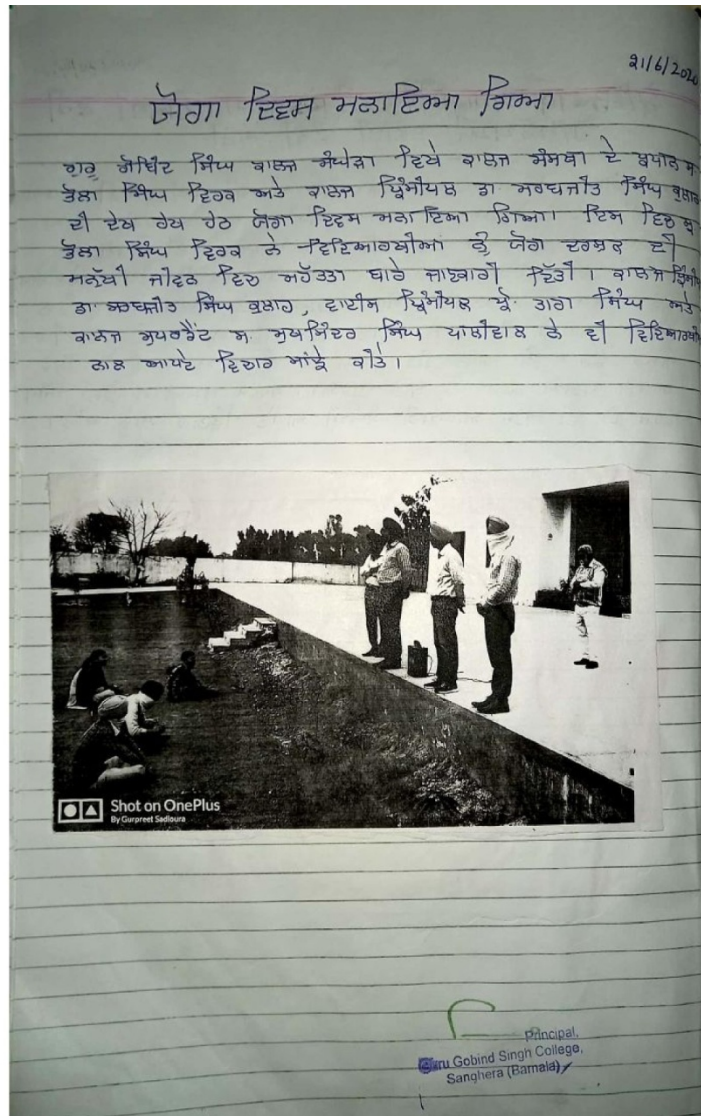 21/6/2020
ਯੋਗਾ ਦਿਵਸ ਮਨਾਇਆ ਗਿਆ
ਗੁਰੂ ਗੋਬਿੰਦ ਸਿੰਘ ਕਾਲਜ ਸੰਘੇੜਾ ਵਿਖੇ ਕਾਲਜ ਸੰਸਥਾ ਦੇ ਪ੍ਰਧਾਨ ਸ.
ਭੋਲਾ ਸਿੰਘ ਵਿਰਕ ਅਤੇ ਕਾਲਜ ਪ੍ਰਿੰਸੀਪਲ ਡਾ. ਸਰਬਜੀਤ ਸਿੰਘ ਕੁਲਾਰ
ਦੀ ਦੇਖ ਰੇਖ ਹੇਠ ਯੋਗਾ ਦਿਵਸ ਮਨਾਇਆ ਗਿਆ। ਇਸ ਵਿਚ
ਭੋਲਾ ਸਿੰਘ ਵਿਰਕ ਨੇ ਵਿਦਿਆਰਥੀਆਂ ਨੂੰ ਯੋਗ ਦਰਸ਼ਨ ਦੀ
ਮਨੁੱਖੀ ਜੀਵਨ ਵਿਚ ਮਹੱਤਤਾ ਬਾਰੇ ਜਾਣਕਾਰੀ ਦਿੱਤੀ। ਕਾਲਜ
ਡਾ. ਸਰਬਜੀਤ ਸਿੰਘ ਕੁਲਾਰ, ਵਾਈਸ ਪ੍ਰਿੰਸੀਪਲ ਪ੍ਰੋ. ਤਾਰਾ ਸਿੰਘ ਅਤੇ
ਕਾਲਜ ਸੁਪਰਡੈਂਟ ਸ. ਸਿੰਘ ਧਾਲੀਵਾਲ ਨੇ ਵੀ
ਨਾਲ ਆਪਣੇ ਵਿਚਾਰ ਸਾਂਝੇ ਕੀਤੇ।
Shot on OnePlus
By Gurpreet Sadioura
Principal,
Guru Gobind Singh College,
Sanghera (Barnala)